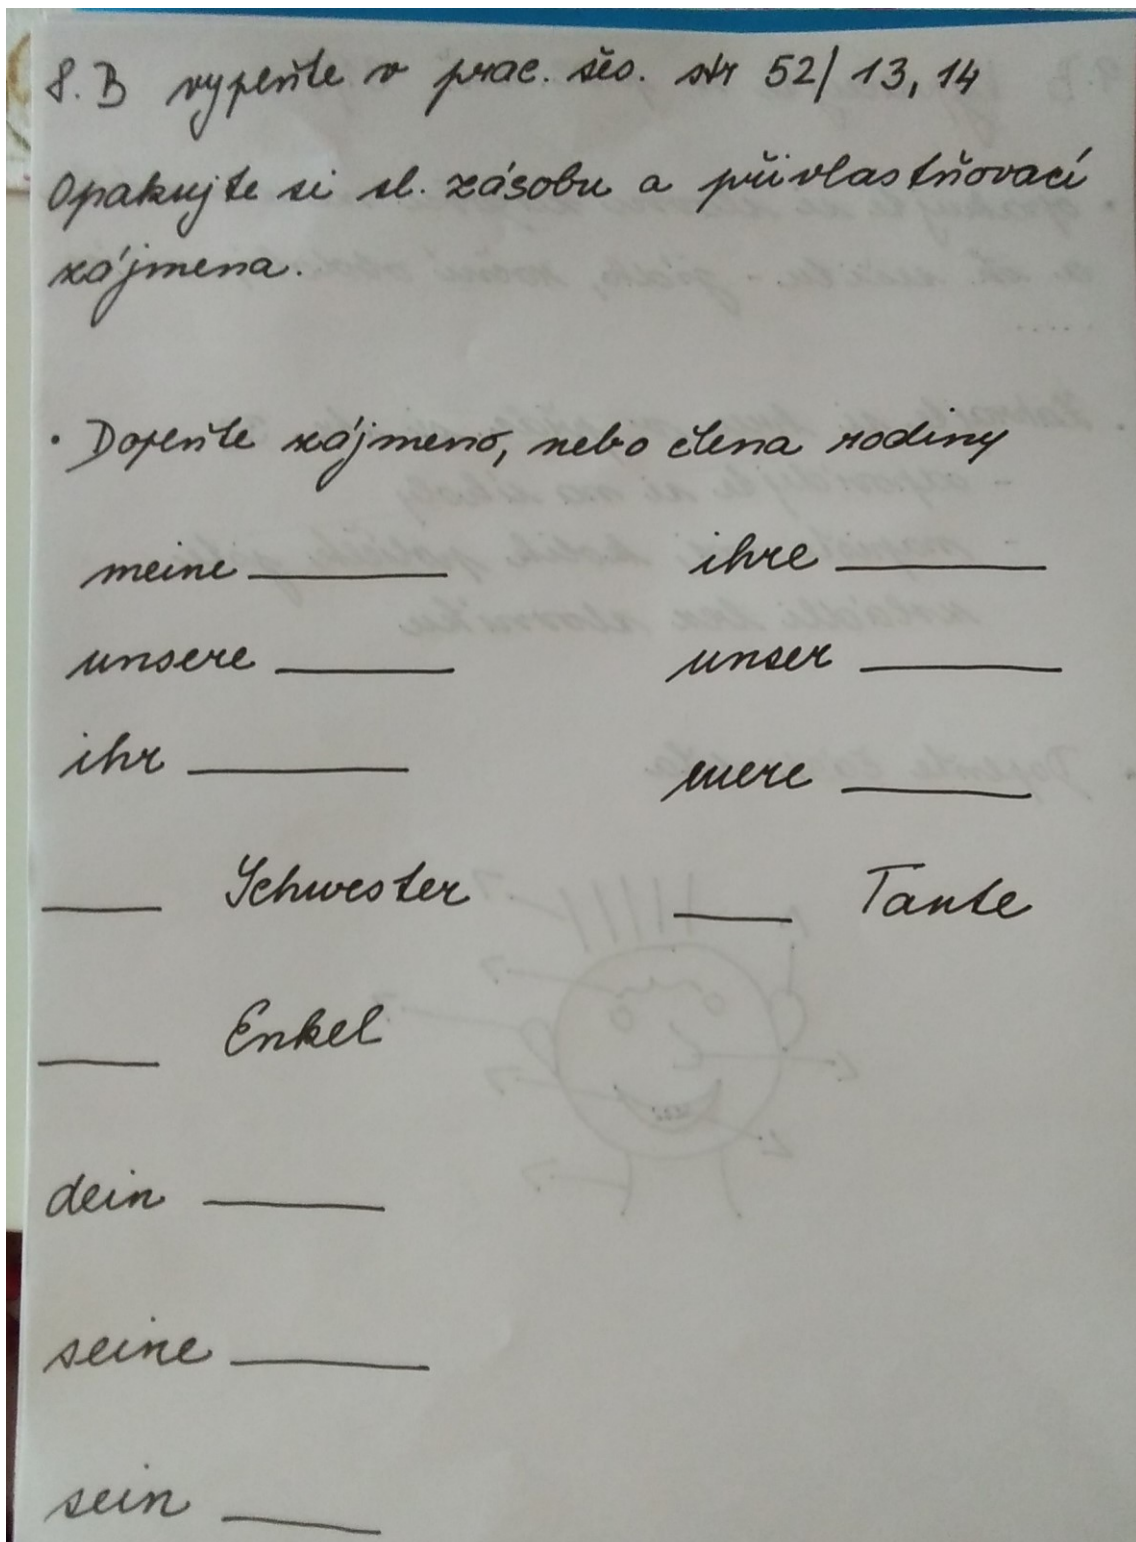 8. B vyplňte v prac. seš. str 52/ 13, 14
Opakujte si sl. zásobu a přivlastňovací
zájmena.
• Doplňte zájmeno, nebo člena rodiny
meine ________ ihre ________
unsere ________ unser ________
ihr ________ euere ________
____ Schwester ____ Tante
____ Enkel
dein ________
seine ________
sein ________